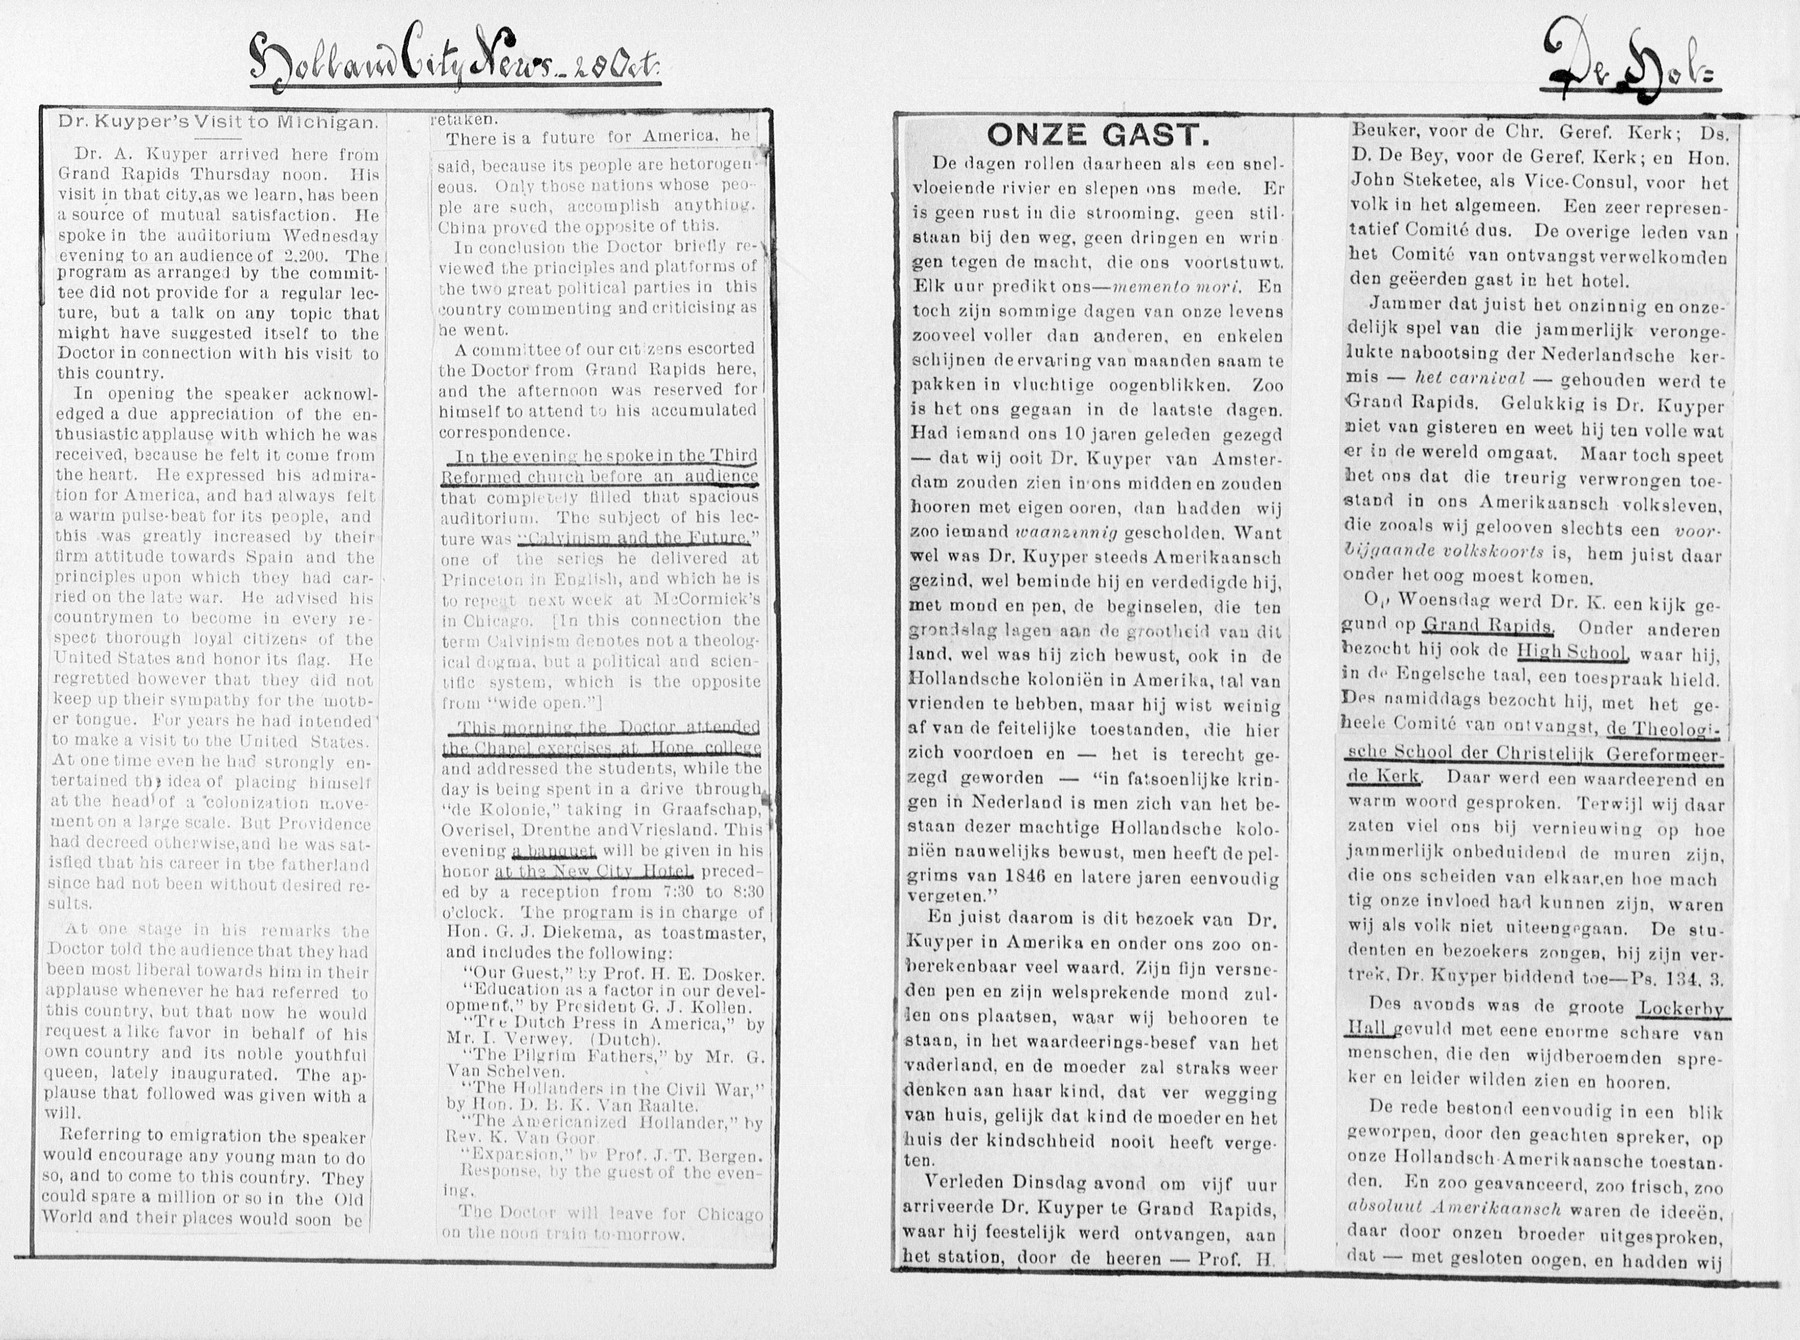 Holland City News - 28 Oct.
Dr. Kuyper's Visit to Michigan.
Dr. A. Kuyper arrived here from
Grand Rapids Thursday noon. His
visit in that city, as we learn, has been
a source of mutual satisfaction. He
spoke in the auditorium Wednesday
evening to an audience of 2,200. The
program as arranged by the commit-
tee did not provide for a regular lec-
ture, but a talk on any topic that
might have suggested itself to the
Doctor in connection with his visit to
this country.
In opening the speaker acknowl-
edged a due appreciation of the en-
thusiastic applause with which he was
received, because he felt it come from
the heart. He expressed his admira-
tion for America, and had always felt
a warm pulse-beat for its people, and
this was greatly increased by their
firm attitude towards Spain and the
principles upon which they had car-
ried on the late war. He advised his
countrymen to become in every re-
spect thorough loyal citizens of the
United States and honor its flag. He
regretted however that they did not
keep up their sympathy for the moth-
er tongue. For years he had intended
to make a visit to the United States.
At one time even he had strongly en-
tertained the idea of placing himself
at the head of a colonization move-
ment on a large scale. But Providence
had decreed otherwise, and he was sat-
isfied that his career in the fatherland
since had not been without desired re-
sults.
At one stage in his remarks the
Doctor told the audience that they had
been most liberal towards him in their
applause whenever he had referred to
this country, but that now he would
request a like favor in behalf of his
own country and its noble youthful
queen, lately inaugurated. The ap-
plause that followed was given with a
will.
Referring to emigration the speaker
would encourage any young man to do
so, and to come to this country. They
could spare a million or so in the Old
World and their places would soon be
retaken.
There is a future for America, he
said, because its people are heterogen-
eous. Only those nations whose peo-
ple are such, accomplish anything.
China proved the opposite of this.
In conclusion the Doctor briefly re-
viewed the principles and platforms of
the two great political parties in this
country commenting and criticising as
he went.
A committee of our citizens escorted
the Doctor from Grand Rapids here,
and the afternoon was reserved for
himself to attend to his accumulated
correspondence.
In the evening he spoke in the Third
Reformed church before an audience
that completely filled that spacious
auditorium. The subject of his lec-
ture was "Calvinism and the Future,"
one of the series he delivered at
Princeton in English, and which he is
to repeat next week at McCormick's
in Chicago. [In this connection the
term Calvinism denotes not a theolog-
ical dogma, but a political and scien-
tific system, which is the opposite
from "wide open."]
This morning the Doctor attended
the Chapel exercises at Hope college
and addressed the students, while the
day is being spent in a drive through
"de Kolonie," taking in Graafschap,
Overisel, Drenthe and Vriesland. This
evening a banquet will be given in his
honor at the New City Hotel, preced-
ed by a reception from 7:30 to 8:30
o'clock. The program is in charge of
Hon. G. J. Diekema, as toastmaster,
and includes the following:
"Our Guest," by Prof. H. E. Dosker.
"Education as a factor in our devel-
opment," by President G. J. Kollen.
"The Dutch Press in America," by
Mr. I. Verwey. (Dutch).
"The Pilgrim Fathers," by Mr. G.
Van Schelven.
"The Hollanders in the Civil War,"
by Hon. D. B. K. Van Raalte.
"The Americanized Hollander," by
Rev. K. Van Goor.
"Expansion," by Prof. J. T. Bergen.
Response, by the guest of the even-
ing.
The Doctor will leave for Chicago
on the noon train to-morrow.
De Hol=
ONZE GAST.
De dagen rollen daarheen als een snel-
vloeiende rivier en slepen ons mede. Er
is geen rust in die strooming, geen stil-
staan bij den weg, geen dringen en wrin
gen tegen de macht, die ons voortstuwt.
Elk uur predikt ons—memento mori. En
toch zijn sommige dagen van onze levens
zooveel voller dan anderen, en enkelen
schijnen de ervaring van maanden saam te
pakken in vluchtige oogenblikken. Zoo
is het ons gegaan in de laatste dagen.
Had iemand ons 10 jaren geleden gezegd
— dat wij ooit Dr. Kuyper van Amster-
dam zouden zien in ons midden en zouden
hooren met eigen ooren, dan hadden wij
zoo iemand waanzinnig gescholden. Want
wel was Dr. Kuyper steeds Amerikaansch
gezind, wel beminde hij en verdedigde hij,
met mond en pen, de beginselen, die ten
grondslag lagen aan de grootheid van dit
land, wel was hij zich bewust, ook in de
Hollandsche koloniën in Amerika, tal van
vrienden te hebben, maar hij wist weinig
af van de feitelijke toestanden, die hier
zich voordoen en — het is terecht ge-
zegd geworden — "in fatsoenlijke krin-
gen in Nederland is men zich van het be-
staan dezer machtige Hollandsche kolo-
niën nauwelijks bewust, men heeft de pel-
grims van 1846 en latere jaren eenvoudig
vergeten."
En juist daarom is dit bezoek van Dr.
Kuyper in Amerika en onder ons zoo on-
berekenbaar veel waard. Zijn fijn versne-
den pen en zijn welsprekende mond zul-
len ons plaatsen, waar wij behooren te
staan, in het waardeerings-besef van het
vaderland, en de moeder zal straks weer
denken aan haar kind, dat ver wegging
van huis, gelijk dat kind de moeder en het
huis der kindschheid nooit heeft verge-
ten.
Verleden Dinsdag avond om vijf uur
arriveerde Dr. Kuyper te Grand Rapids,
waar hij feestelijk werd ontvangen, aan
het station, door de heeren — Prof. H.
Beuker, voor de Chr. Geref. Kerk; Ds.
D. De Bey, voor de Geref. Kerk; en Hon.
John Steketee, als Vice-Consul, voor het
volk in het algemeen. Een zeer represen-
tatief Comité dus. De overige leden van
het Comité van ontvangst verwelkomden
den geëerden gast in het hotel.
Jammer dat juist het onzinnig en onze-
delijk spel van die jammerlijk veronge-
lukte nabootsing der Nederlandsche ker-
mis — het carnival — gehouden werd te
Grand Rapids. Gelukkig is Dr. Kuyper
niet van gisteren en weet hij ten volle wat
er in de wereld omgaat. Maar toch speet
het ons dat die treurig verwrongen toe-
stand in ons Amerikaansch volksleven,
die zooals wij gelooven slechts een voor-
bijgaande volkskoorts is, hem juist daar
onder het oog moest komen.
Op Woensdag werd Dr. K. een kijk ge-
gund op Grand Rapids. Onder anderen
bezocht hij ook de High School, waar hij,
in de Engelsche taal, een toespraak hield.
Des namiddags bezocht hij, met het ge-
heele Comité van ontvangst, de Theologi-
sche School der Christelijk Gereformeer-
de Kerk. Daar werd een waardeerend en
warm woord gesproken. Terwijl wij daar
zaten viel ons bij vernieuwing op hoe
jammerlijk onbeduidend de muren zijn,
die ons scheiden van elkaar, en hoe mach
tig onze invloed had kunnen zijn, waren
wij als volk niet uiteengegaan. De stu-
denten en bezoekers zongen, bij zijn ver-
trek, Dr. Kuyper biddend toe—Ps. 134. 3.
Des avonds was de groote Lockerby
Hall gevuld met eene enorme schare van
menschen, die den wijdberoemden spre-
ker en leider wilden zien en hooren.
De rede bestond eenvoudig in een blik
geworpen, door den geachten spreker, op
onze Hollandsch-Amerikaansche toestan-
den. En zoo geavanceerd, zoo frisch, zoo
absoluut Amerikaansch waren de ideeën,
daar door onzen broeder uitgesproken,
dat — met gesloten oogen, en hadden wij